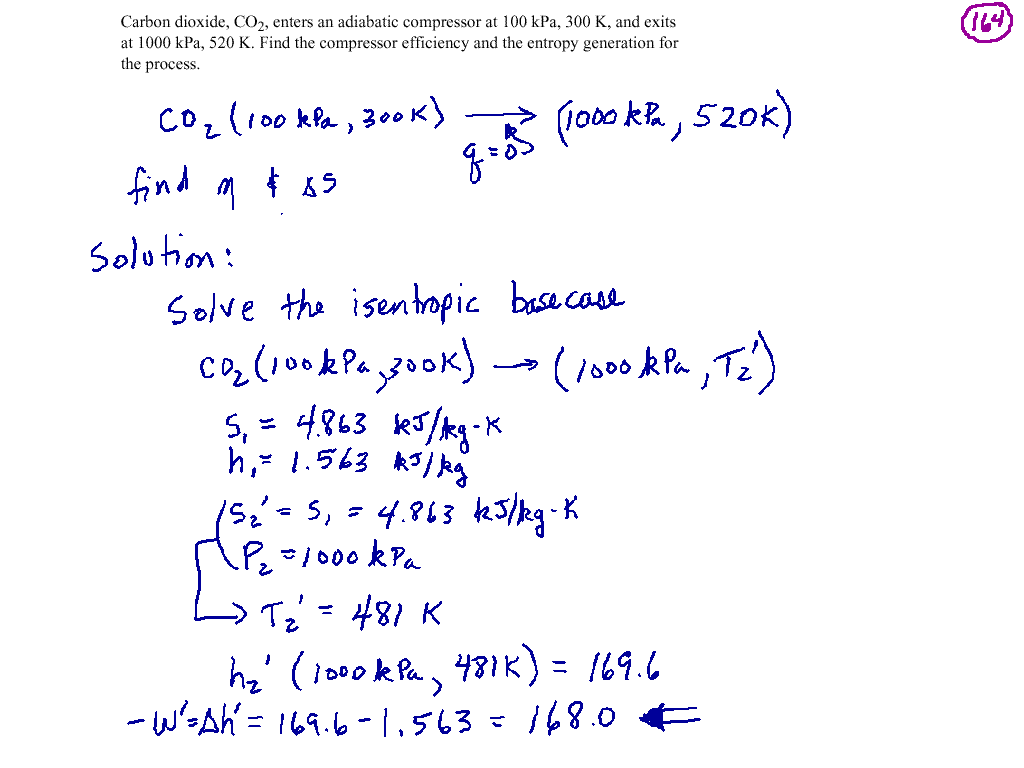 Carbon dioxide, CO₂, enters an adiabatic compressor at 100 kPa, 300 K, and exits
at 1000 kPa, 520 K. Find the compressor efficiency and the entropy generation for
the process.
164
CO₂ (100 kPa, 300K) → (1000 kPa, 520K)
q=0
find η & ΔS
Solution:
Solve the isentropic base case
CO₂ (100 kPa, 300K) → (1000 kPa, T₂')
S₁ = 4.863 kJ/kg-K
h₁ = 1.563 kJ/kg
S₂' = S₁ = 4.863 kJ/kg-K
P₂ = 1000 kPa
→ T₂' = 481 K
h₂' (1000 kPa, 481K) = 169.6
-W'=Δh' = 169.6 - 1.563 = 168.0 ⇐